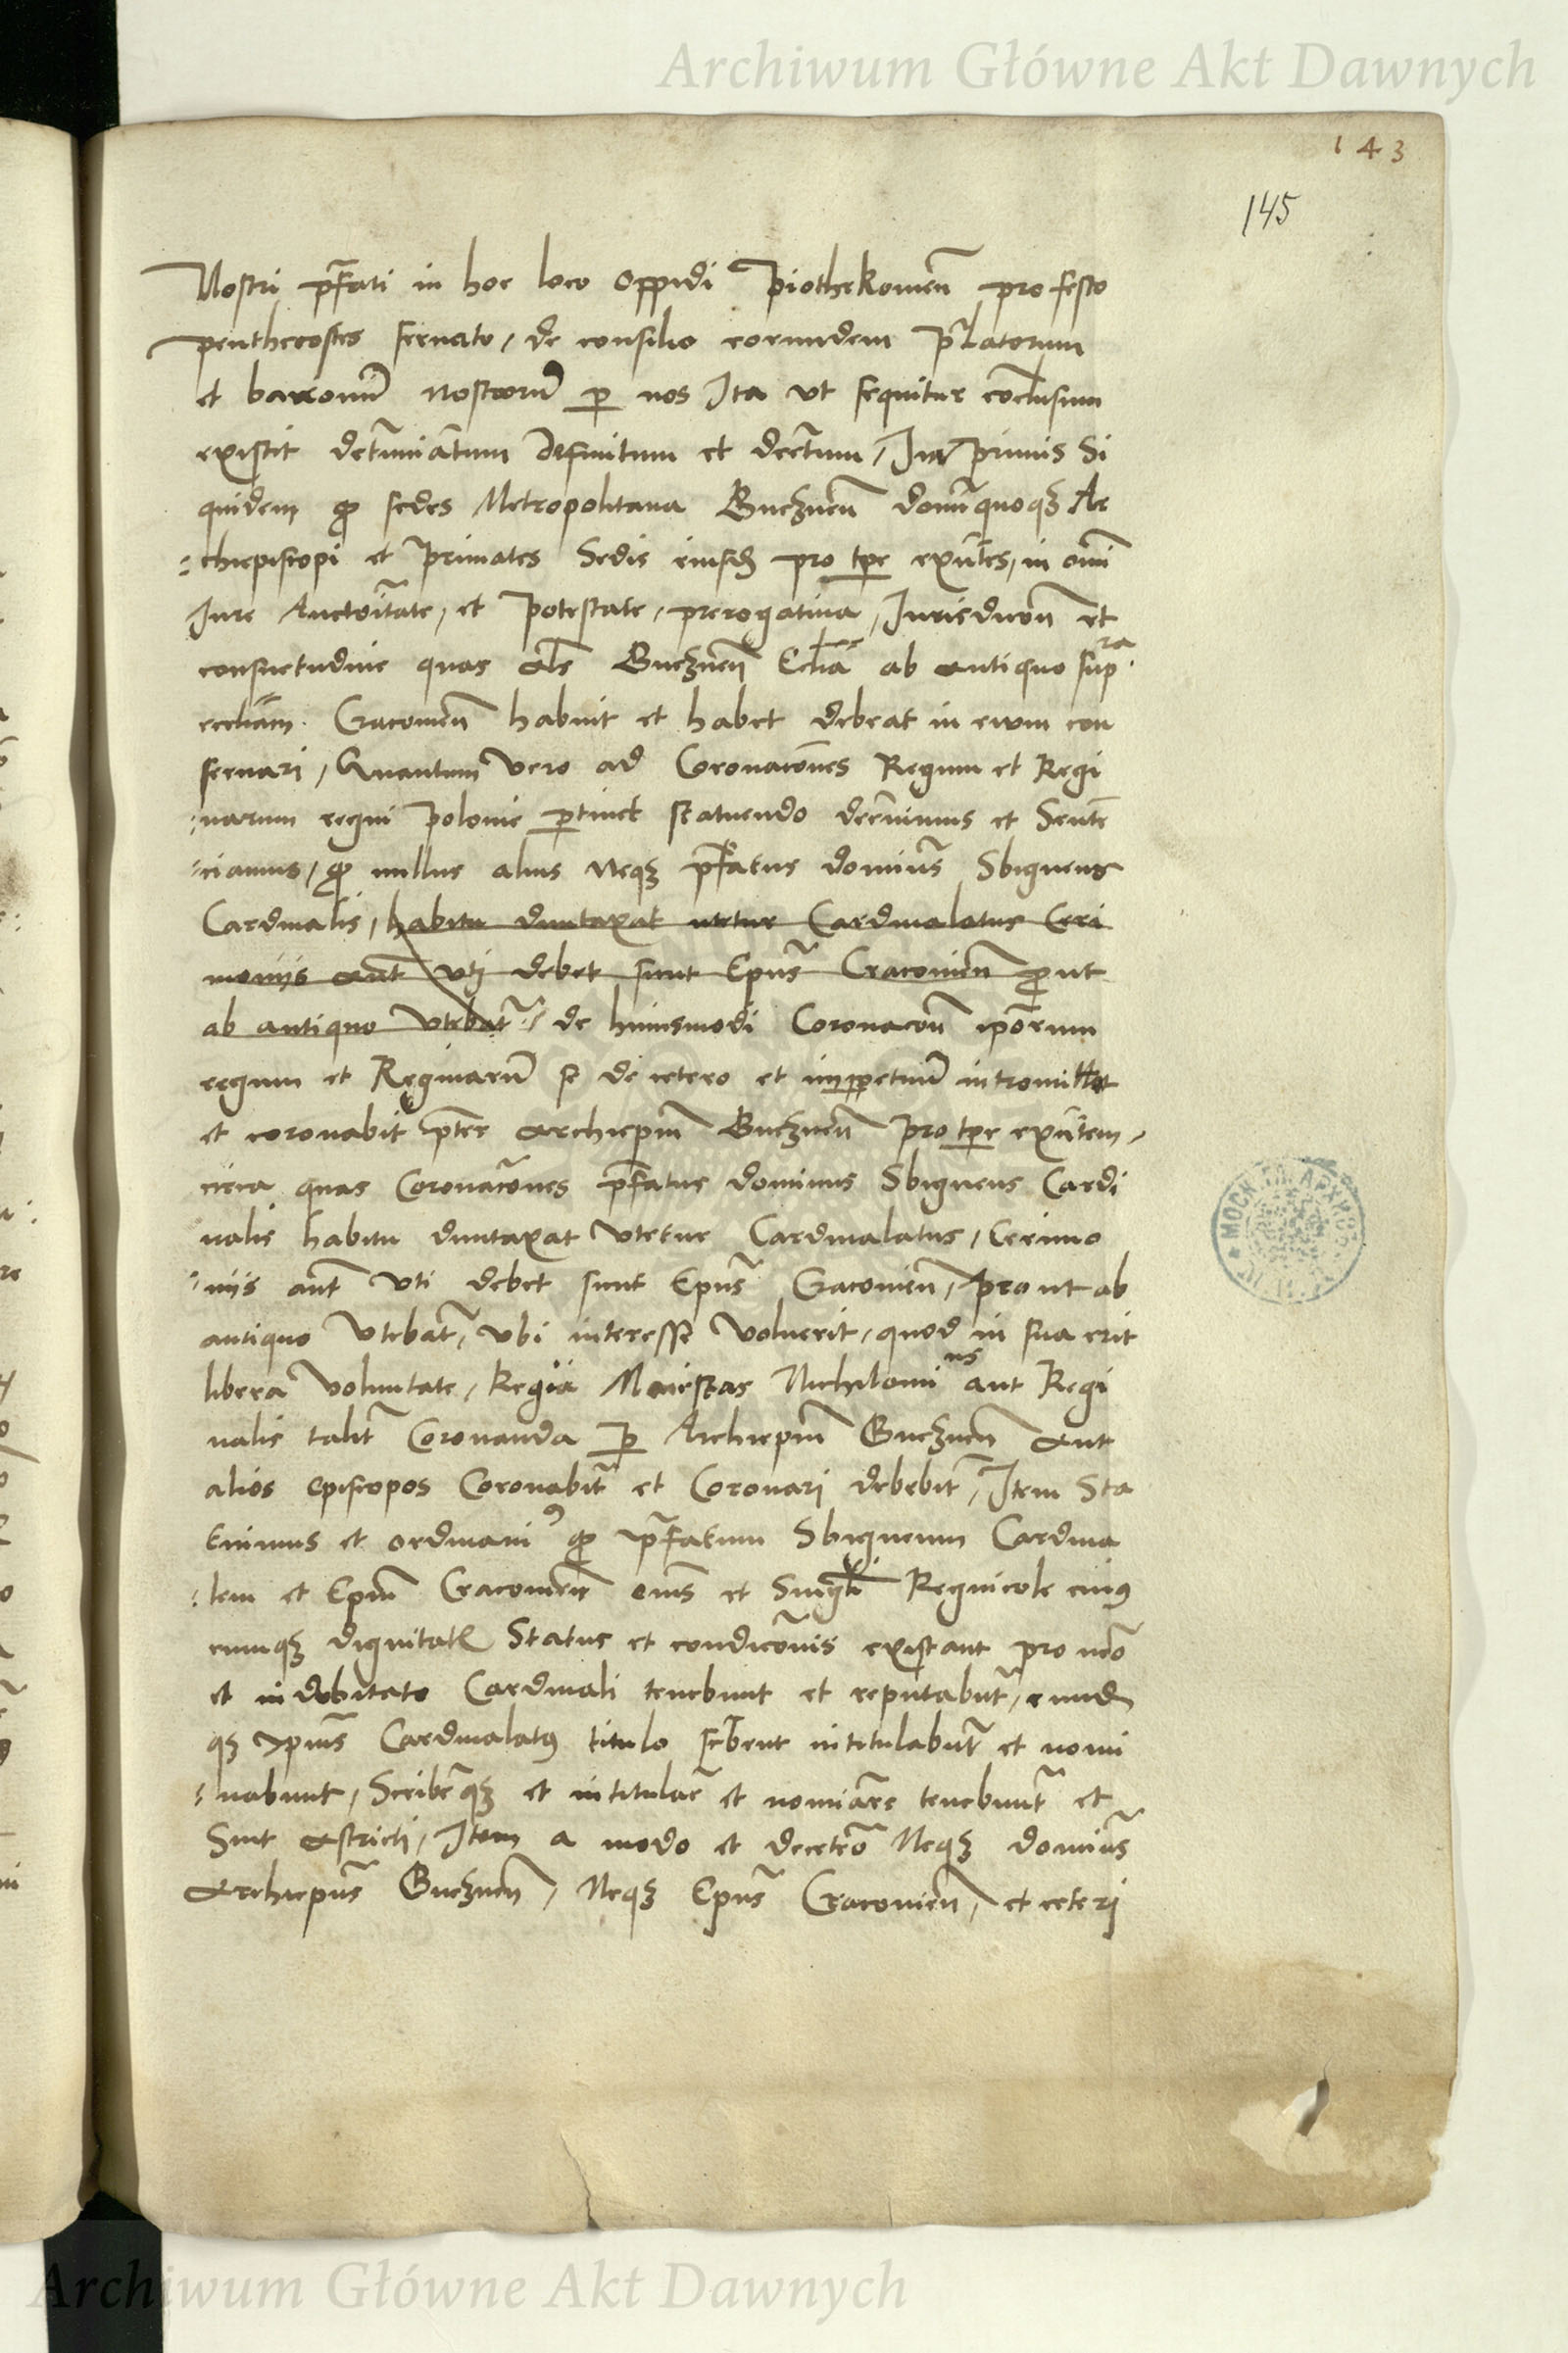 Archiwum Główne Akt Dawnych
143
145
Nostri p̄fati in hoc loco Oppidi Piothrkouień pro festo
penthecostes seruato / de consilio eorundem P̄latorum
et baronū nostrorū p nos Ita vt sequitur cōclusum
existit det̄miātum definitum et decr̄tum / In Primis Si
quidem sedes Metropolitana Gneznen̄ domīquoqȝ Ar
chiepiscopi et primates Sedis eiusdē pro tpe exn̄tes / in om̄i
Iure Auctoītate / et potestate / prerogatiua / Iurisdiccōn et
consuetudine quas als Gneznen̄ Eccliā ab antiquo supra
eccliām Cracouien̄ habuit et habet debeat in euum con
seruari / Quantum vero ad Coronacōnes Regum et Regi
narum regni polonie ptinet statuendo decernimus et Sentē
ciamus / nullus alius neqȝ p̄fatus dominus Sbigneus
Cardinalis / habitu duntaxat utetur Cardinalatus Ceri
monijs aut̄ vtj debet sicut Epūs Cracouien̄ prout
ab antiquo vtebat̄ / de huiusmodi Coronacōn ip̄orum
regum et Reginarū se de cetero et imppetuū intromittet
et coronabit p̄ter archiepm̄ Gneznen̄ pro tpe exn̄tem /
circa quas Coronacōnes p̄fatus dominus Sbigneus Cardi
nalis habitu duntaxat vtetur Cardinalatus / Cerimo
nijs aut̄ vti debet sicut Epūs Cracouien̄ / prout ab
antiquo vtebat̄ / vbi interesse voluerit / quod in sua erit
libera voluntate / Regia Maiestas Nichilominus aut Regi
nalis talit̄ Coronanda p Archiepm̄ Gneznen̄ aut
alios episcopos Coronabit̄ et Coronari debebit̄ / Item Sta
tuimus et ordinam9 p̄fatum Sbigneum Cardina
lem et Epm̄ Cracouien̄ om̄s et Singli Regnicole cui9
cumqȝ dignitatis Status et condicōnis existant pro vero
et indubitato Cardinali tenebunt et reputabūt / eundē
qȝ Cardinalat9 titulo sc̄bent intitulabūt et nomi
nabunt / Scribeqȝ et intitulare et nomiāre tenebunt̄ et
Sint astricti / Item a modo et decetero Neqȝ dominus
Archiepūs Gneznen̄ / Neqȝ Epūs Cracouien̄ / et ceterj
МОСК АРХИВ
Archiwum Główne Akt Dawnych